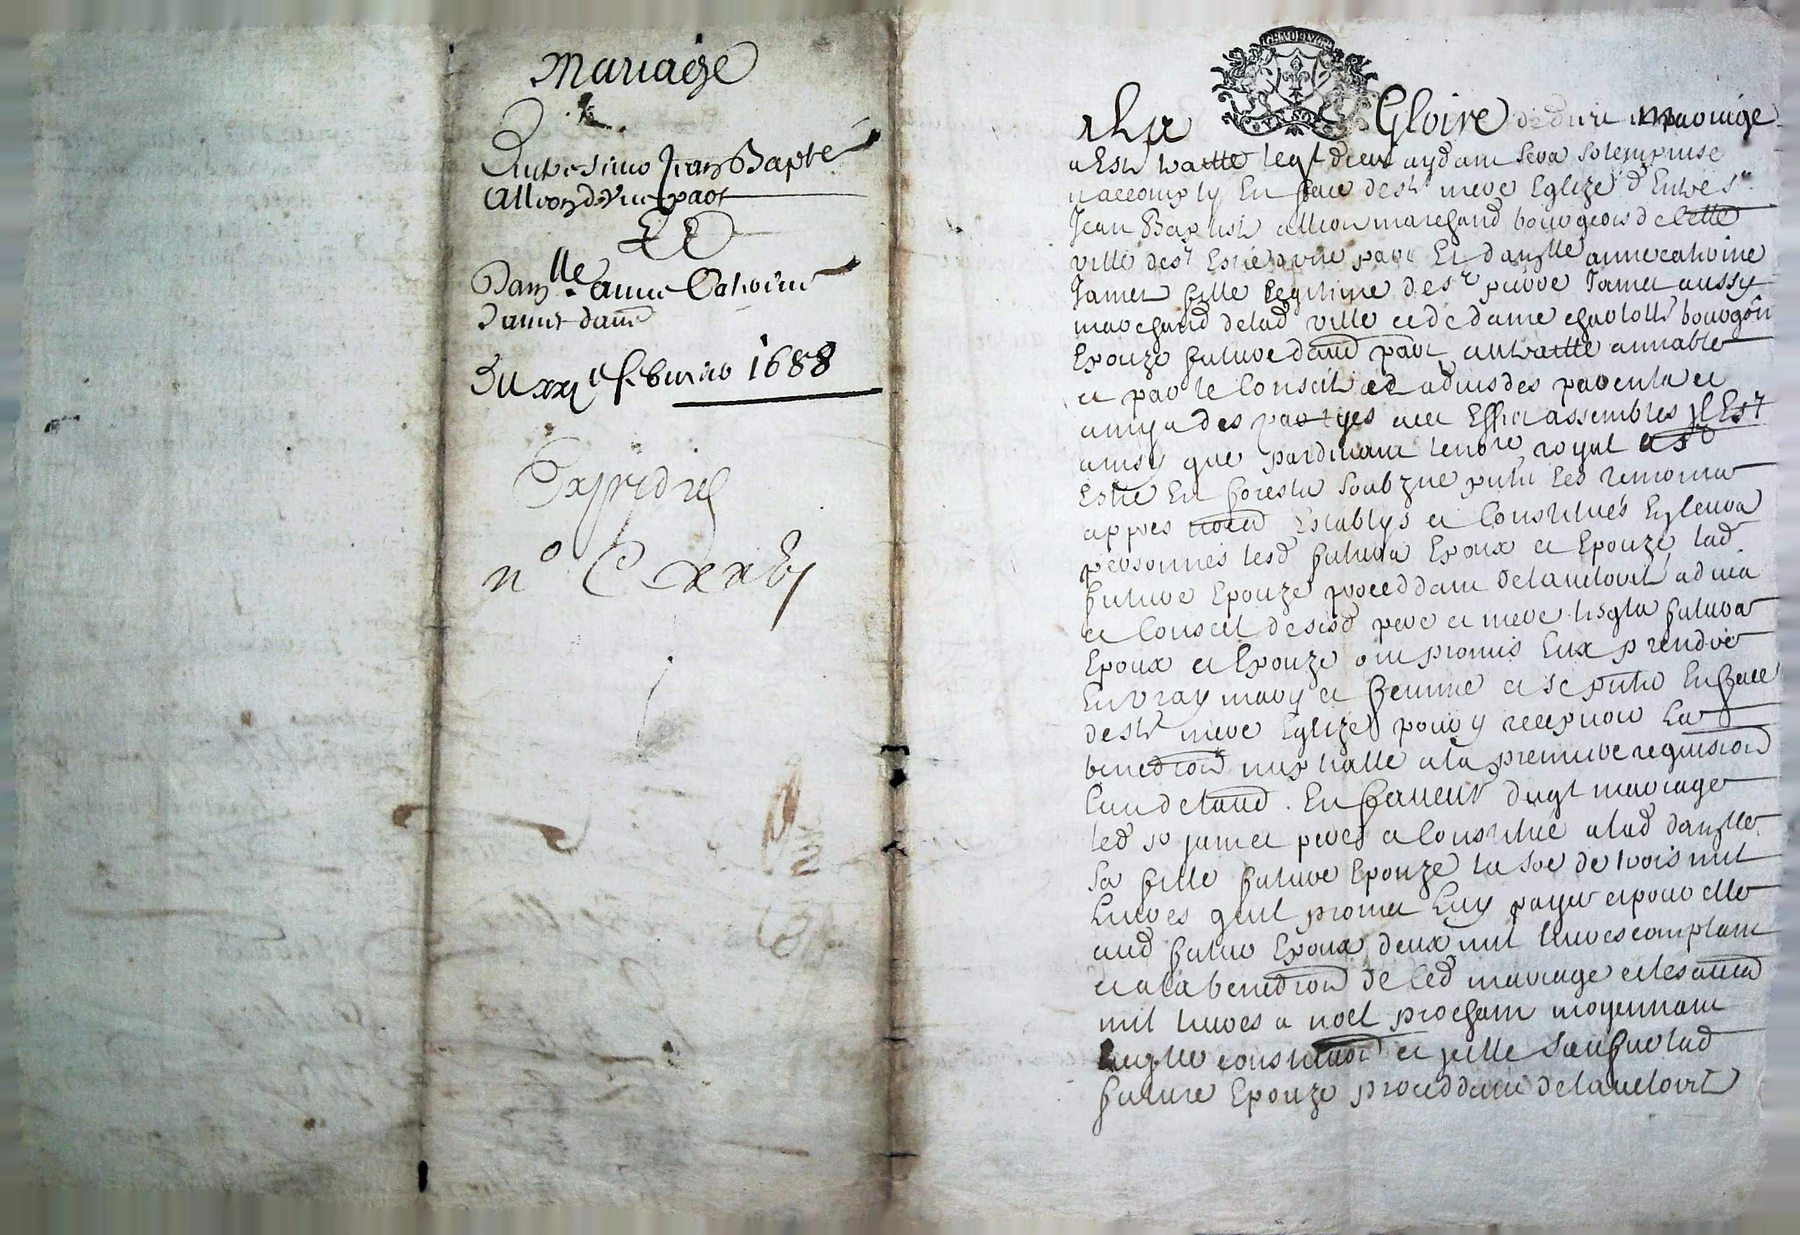 Mariage
Entre Sieur Jean Bapte
Allion d'une part
Et
Damlle anne Catherine
Jamet dautre
Du xxi e febvrier 1688
Expedié
n° C
GENE
A La Gloire de dieu mariage
a Esté traitté leql dieu aydant sera solempnisé
et accomply En face de ste mere Eglize d'Entre sr
Jean Baptiste allion marchand bourgeois de cette
ville de st Estiene d'une part Et damlle anne catherine
Jamet fille legitime de sr pierre Jamet aussy
marchand de lad ville et de dame charlotte
Epouze future d'aud part, au traitté amiable
et par le Conseil et advis des parents et
amys des partyes a cet Effect assemblés jl Est
ainsy que pardevant le nore royal a st
Estiene En forests soubzigné puis les
appres Establys et Constitués En leurs
personnes lesd futurs Epoux et Epouze lad
future Epouze proceddant de lauctorité advis
et Conseil de sesd pere et mere lesqls futurs
Epoux et Epouze ont promis Eux prendre
En vray mary et femme et se En face
de ste mere Eglize pour y recepvoir La
benediction nuptialle a la premiere requision
L'un de laud. En faveur duql mariage
led sr jamet pere a Constitué a lad damlle
sa fille future Epouze la soe de trois mil
Livres quil promet Luy payer et pour elle
aud futur Epoux deux mil livres comptant
et a la benediction de Ced mariage et les autres
mil livres a noel prochain moyennant
laqlle constitution et jcelle sauf lad
future Epouze proceddant de lauctorité